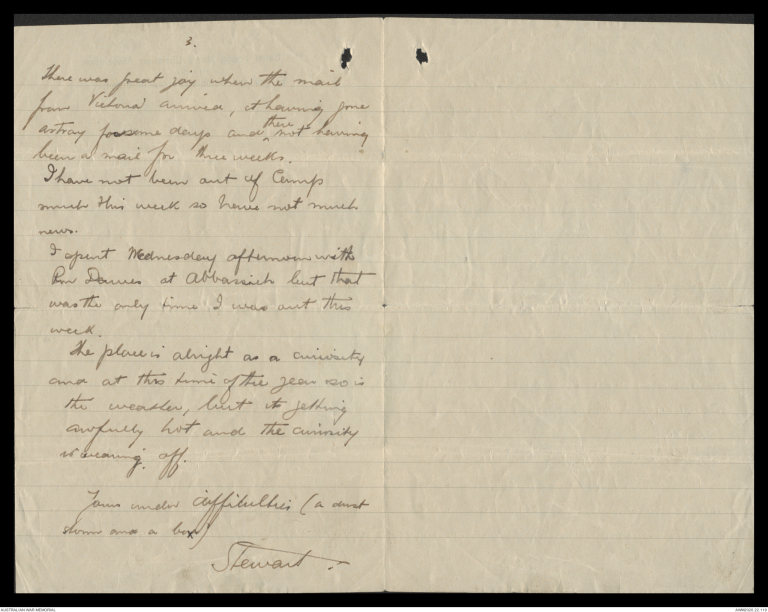 3.
There was great joy when the mail
from Victoria arrived, it having gone
astray for some days and there not having
been a mail for three weeks.
I have not been out of Camp
much this week so have not much
news.
I spent Wednesday afternoon with
Dawes at Abbassieh but that
was the only time I was out this
week.
The place is alright as a curiosity
and at this time of the year so is
the weather, but its getting
awfully hot and the curiosity
is wearing off.
Yours under difficulties (a dust
storm and a box)
Stewart.
AUSTRALIAN WAR MEMORIAL